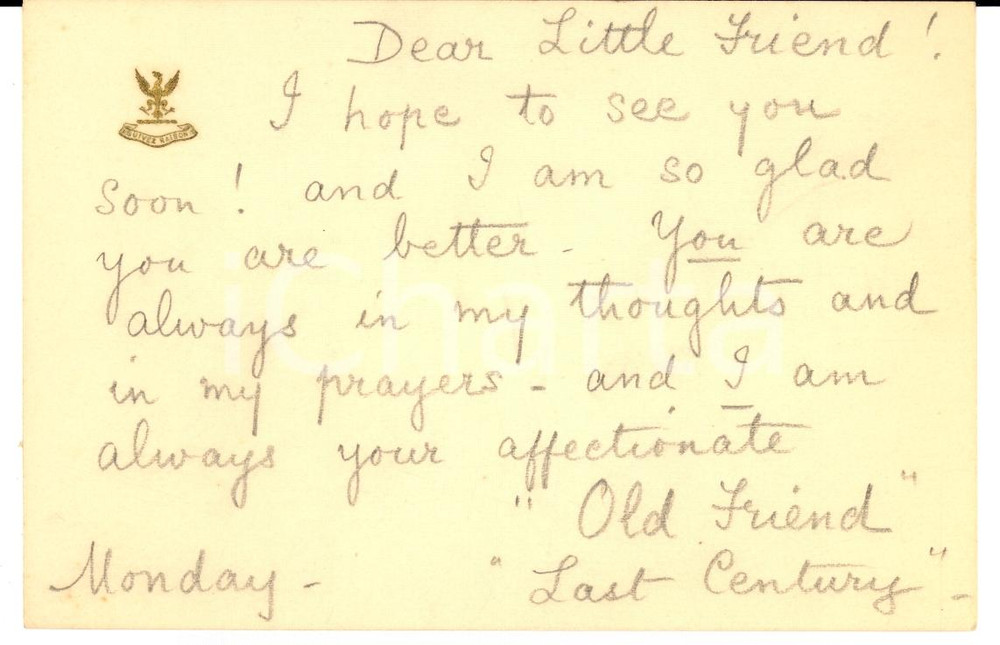 Dear Little Friend!
I hope to see you
soon! and I am so glad
you are better - You are
always in my thoughts and
in my prayers - and I am
always your affectionate
"Old Friend"
Monday - "Last Century" -
SUIVEZ RAISON
iCharta